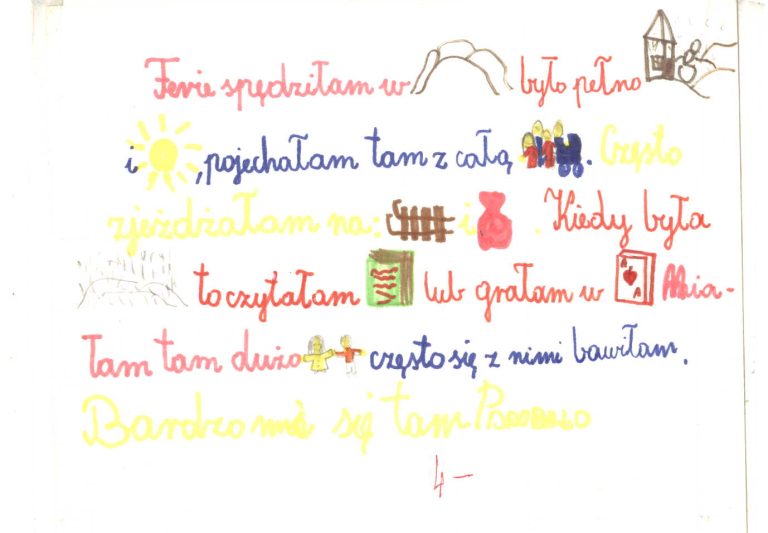 Ferie spędziłam w było pełno
i , pojechałam tam z całą . Często
zjeżdżałam na: i . Kiedy była
to czytałam lub grałam w A A Mia-
łam tam dużo często się z nimi bawiłam.
Bardzo mi się tam Podobało
4-